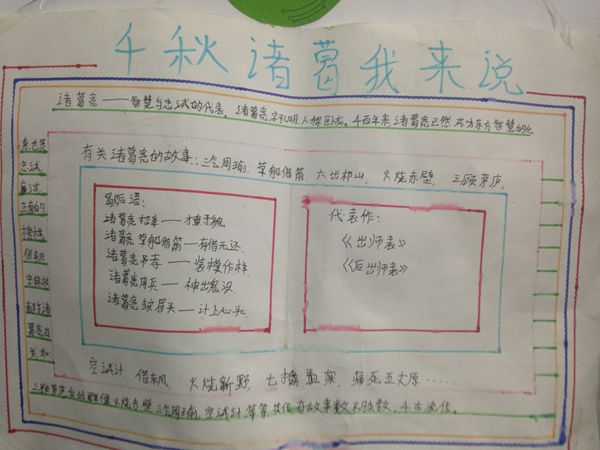 千秋诸葛我来说
诸葛亮——智慧与忠诚的代表。诸葛亮字孔明,人称卧龙。4百年来诸葛亮已然成为东方智慧的化
有关诸葛亮的故事:三气周瑜,草船借箭,六出祁山,火烧赤壁,三顾茅庐,
歇后语:
诸葛亮招亲——才重于貌
诸葛亮草船借箭——有借无还
诸葛亮吊孝——装模作样
诸葛亮用兵——神出鬼没
诸葛亮皱眉头——计上心头
代表作:
《出师表》
《后出师表》
空城计 借东风 火烧新野 七擒孟获 病死五丈原……
三顾茅庐 火烧赤壁 三气周瑜,空城计等等其传奇故事数不胜数,千古流传。